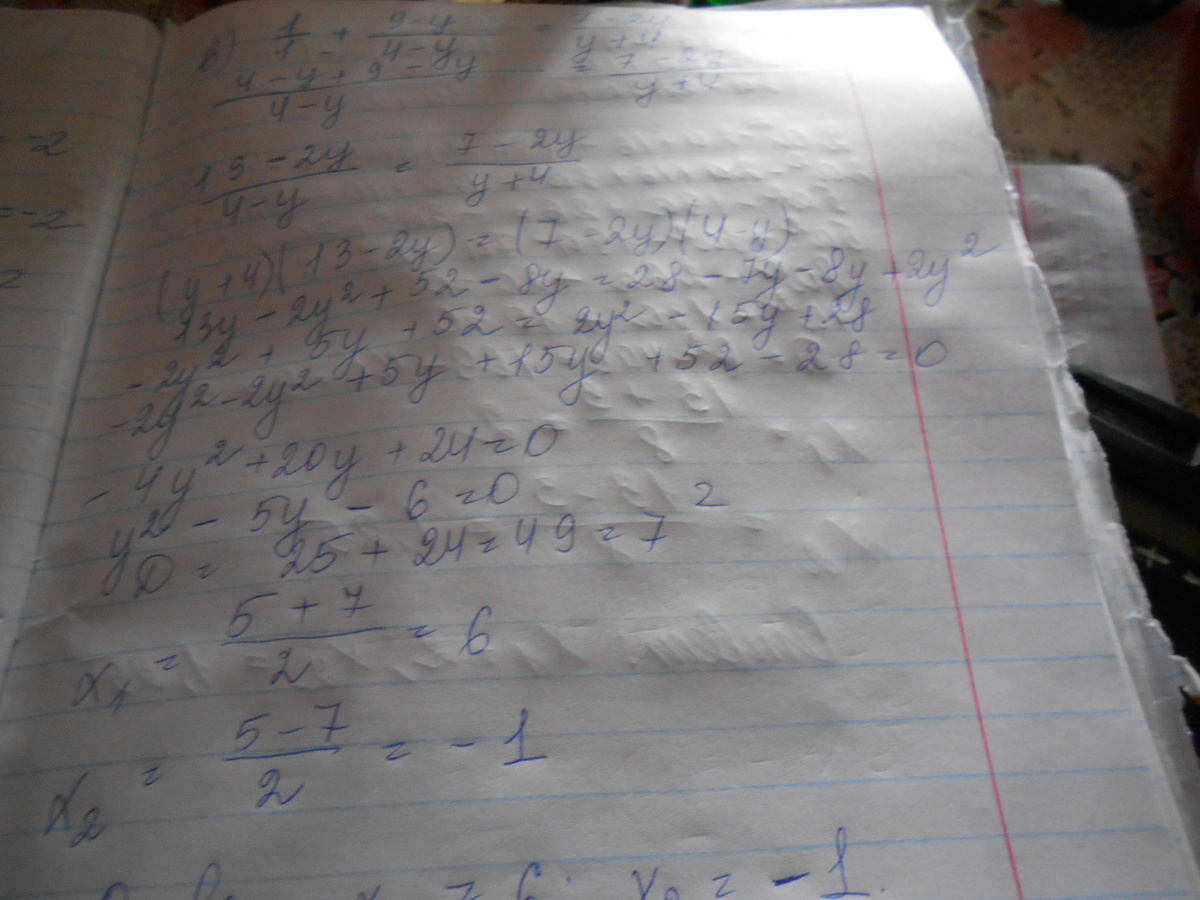 в) 1/1 + 9-y/4-y = 7-2y/y+4
4-y+9-y/4-y = 7-2y/y+4
13-2y/4-y = 7-2y/y+4
(y+4)(13-2y) = (7-2y)(4-y)
13y-2y²+52-8y=28-7y-8y+2y²
-2y²+5y+52=2y²-15y+28
-2y²-2y²+5y+15y+52-28=0
-4y²+20y+24=0
y²-5y-6=0
D=25+24=49=7²
x₁=5+7/2=6
x₂=5-7/2=-1
x₂=-1.
=-2
=-2